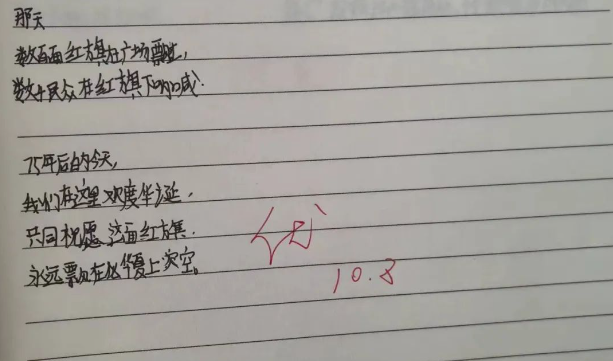 那天
数百面红旗在广场飘扬,
数千民众在红旗下呐喊.
75年后的今天,
我们在这里欢度华诞.
共同祝愿这面红旗.
永远飘在华夏上空。
优
10.8